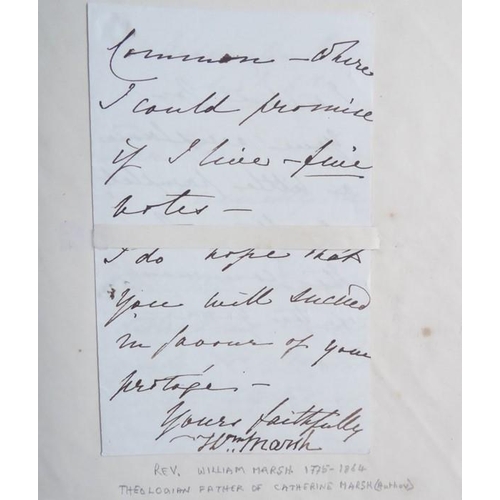 Common – where
I could promise
if I live – five
votes –
I do hope that
you will succeed
in favour of your
protégé –
Yours faithfully
Wm Marsh
REV. WILLIAM MARSH 1775-1864
THEOLOGIAN FATHER OF CATHERINE MARSH (Author)